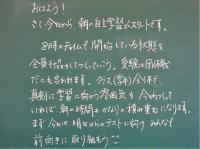 おはよう!
さて今日から、朝の自主学習がスタートです。
8:15のチャイムで開始している状態を
全員で作っていってください。受験は団体戦
だとも言われます。クラス(学年)全体で、
真剣に学習に向かう雰囲気を作って
いければ朝の時間もかなりの積み重ねになります。
まず今日と明日からのテストに向け みんなで
前向きに取り組もう